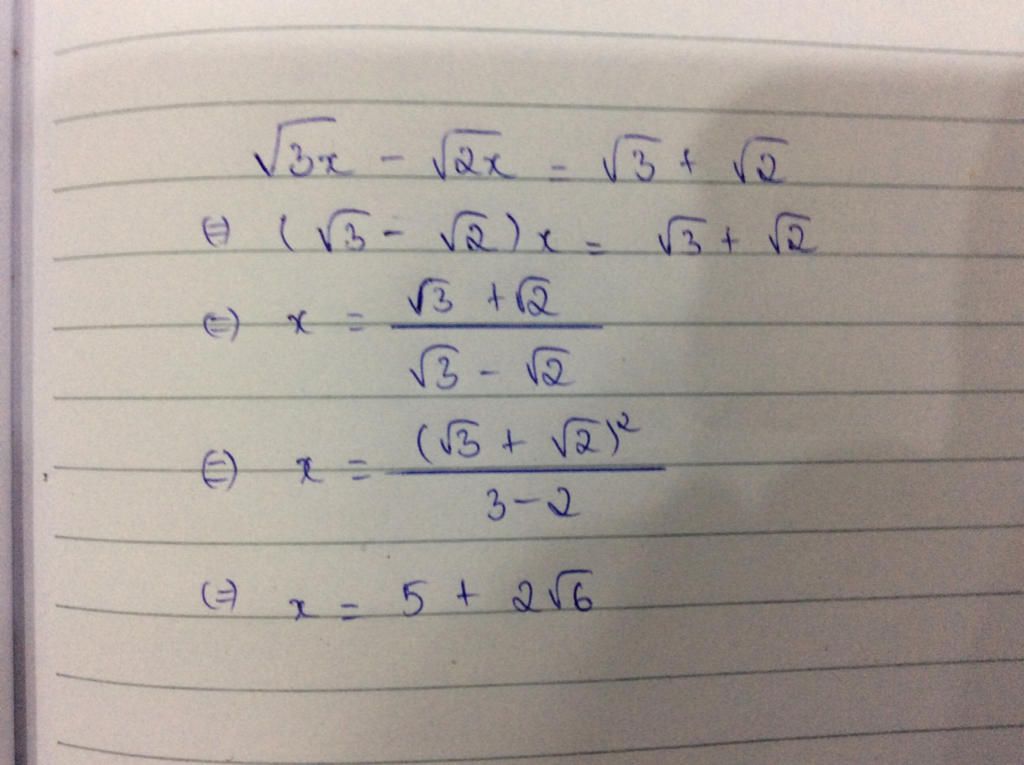 √3x - √2x = √3 + √2
(=) (√3 - √2)x = √3 + √2
(=) x = (√3 + √2)/(√3 - √2)
(=) x = (√3 + √2)²/(3-2)
(=) x = 5 + 2√6